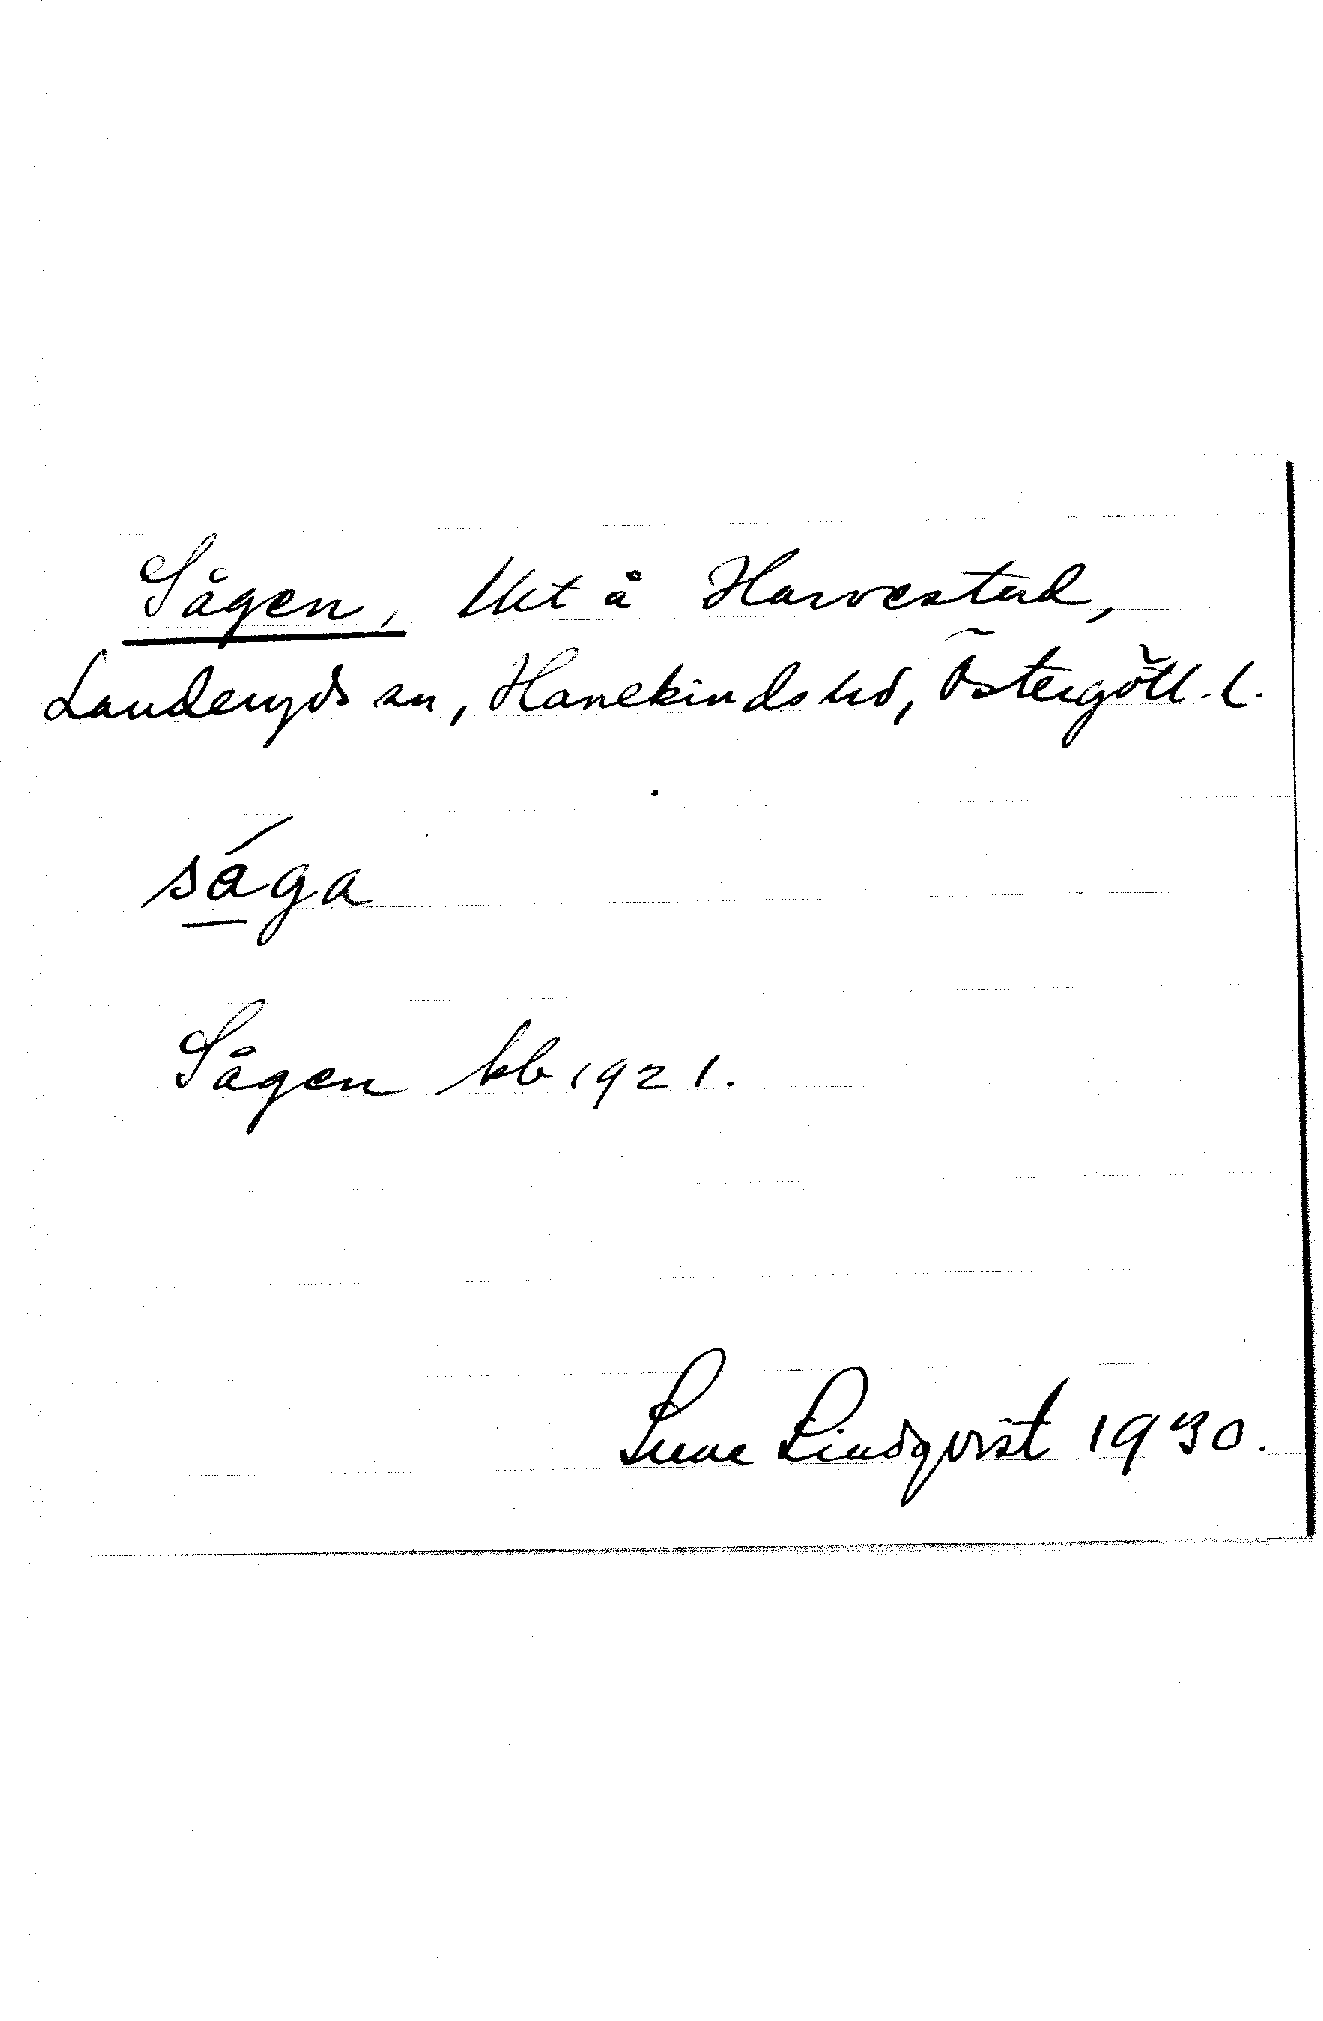 Sågen, lht å Harvestad,
Landeryds sn, Hanekinds hd, Östergötl. l.
sága
Sågen kb 1921.
Sune Lindqvist 1930.